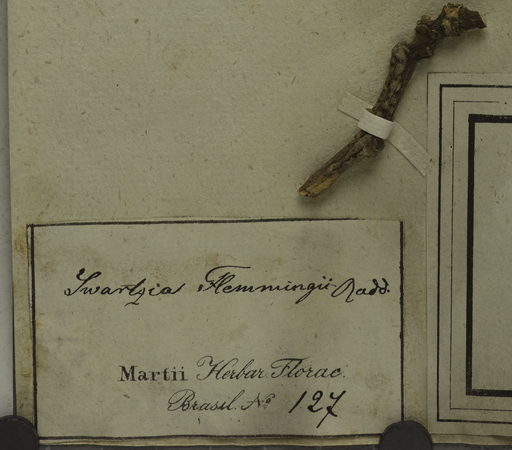 Swartzia Flemmingii Radd.
Martii Herbar. Florae.
Brasil. No 127